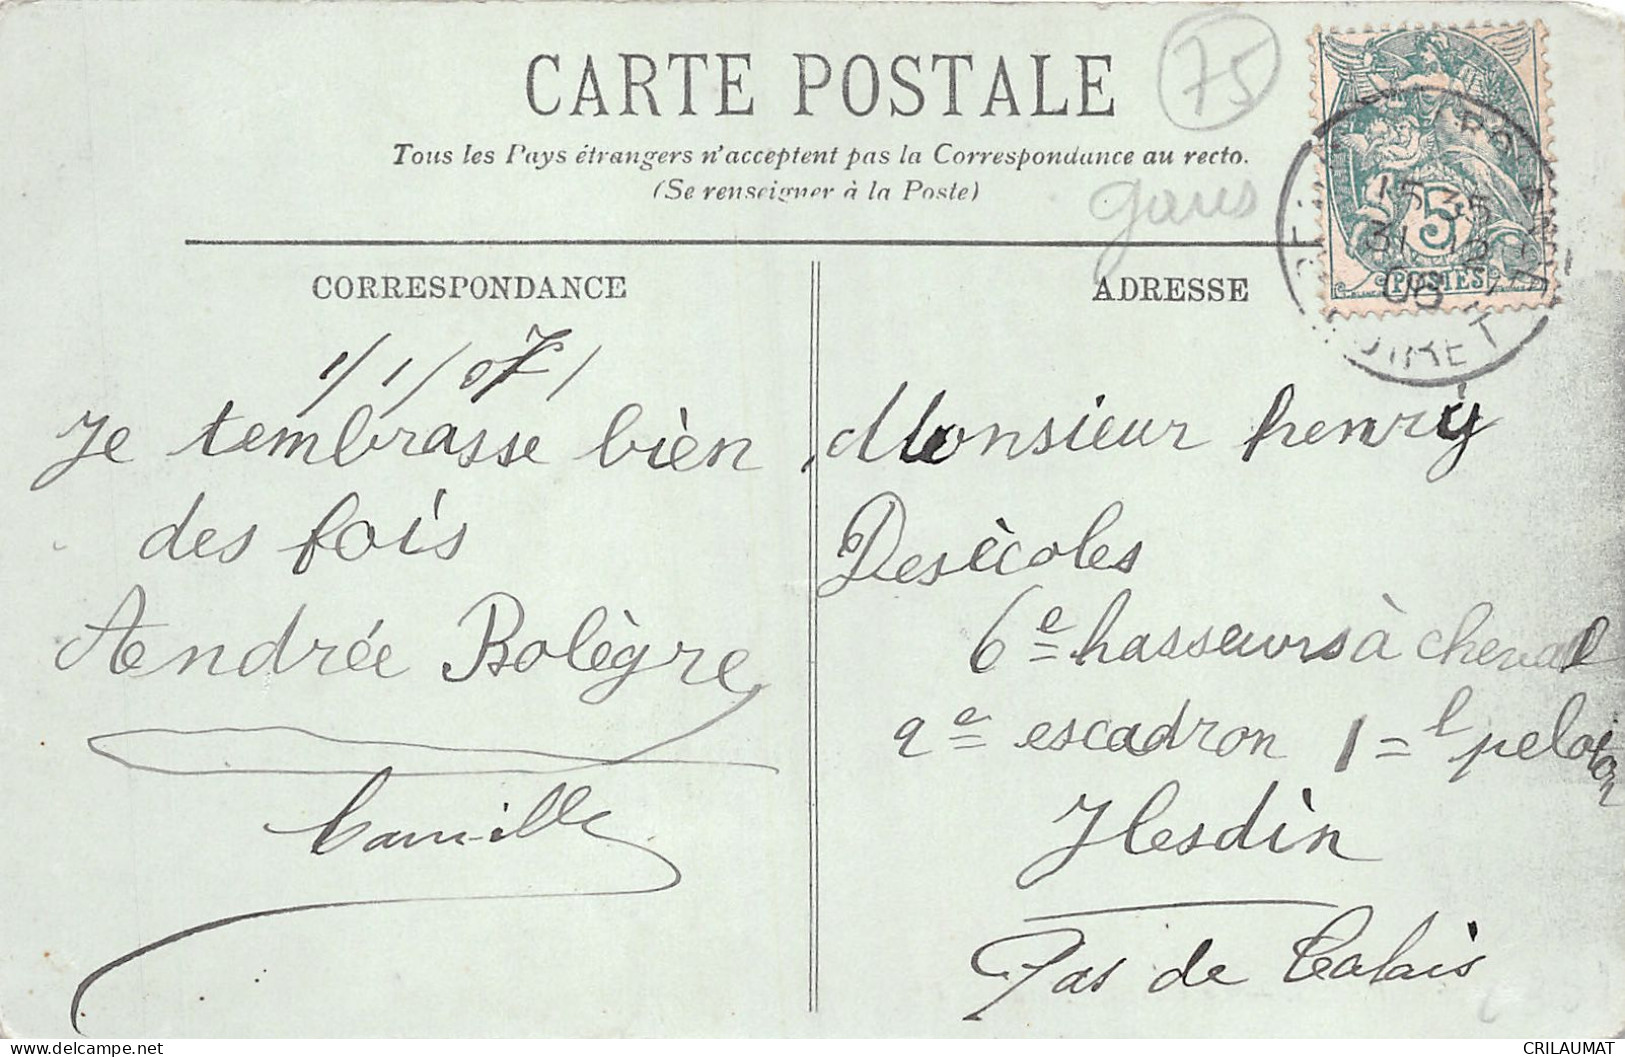 CARTE POSTALE
75
Tous les Pays étrangers n'acceptent pas la Correspondance au recto.
(Se renseigner à la Poste)
CORRESPONDANCE
1/1/07/
Je tembrasse bièn
des fois
Andrée Bolègre
Camille
ADRESSE
15 35
31 12
06
LOIRET
5
POSTES
Monsieur henry
Desècoles
6e hasseurs à cheval
2e escadron 1=l peloton
Hesdin
Pas de Calais
CRILAUMAT